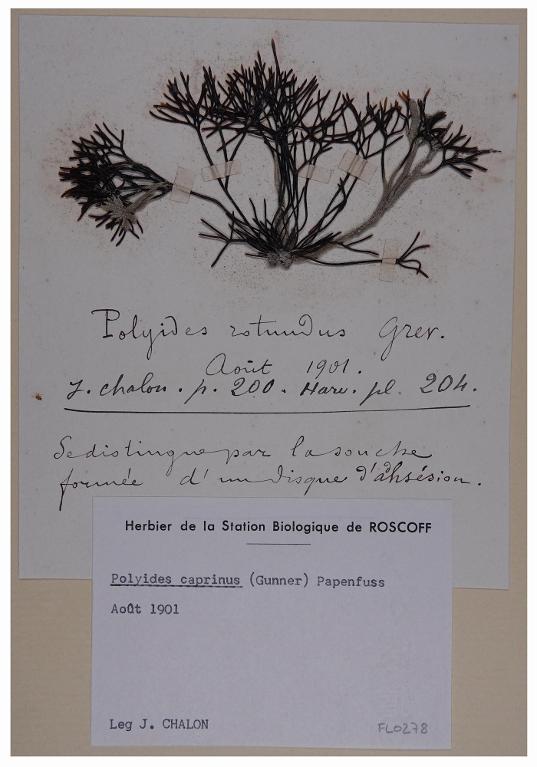 Polyides rotundus Grev.
Août 1901.
J. chalon. p. 200. Harv. pl. 204.
Se distingue par la souche
formée d'un disque d'adhésion.
Herbier de la Station Biologique de ROSCOFF
Polyides caprinus (Gunner) Papenfuss
Août 1901
Leg J. CHALON
FL0278